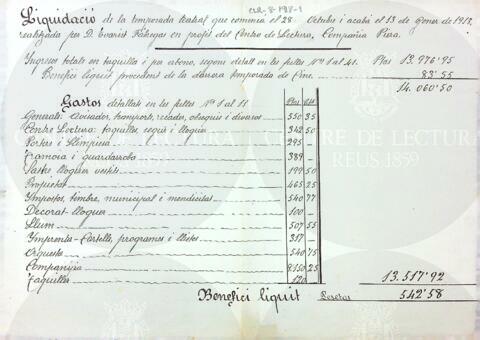 CLR-8-198-1
Liquidació de la temporada teatral que comensá el 28 Octubre i acabá el 13 de Gener de 1918,
realitzada per D. Evarist Fábregas en profit del Centre de Lectura, Companyia Piera.
Ingresos totals en taquilla i per abono, segons detall en les fulles Nº 1 al 41. Ptas 13.976'95
Benefici liquit procedent de la darrera temporada de Cine. 83'55
14.060'50
Gastos detallats en les fulles Nº 1 al 11 Ptas Cts
Generals: Avisador, transports, recados, obsequis i diversos 550 35
Centre Lectura: taquilles, seguis i lloguer 342 50
Portas i Llimpiesa 295
Tramoia i guardarroba 389
Sastre, lloguer vestits 199 50
Propietat 465 25
Impostos, timbre, municipal i mendicitat 540 77
Decorat-lloguer 100
Llum 507 55
Imprenta-Cartells, programes i llistes 317
Orquesta 540 75
Companyia 8.150 25
Taquiller 120
13.517'92
Benefici liquit Pesetas 542'58
CENTRE DE LECTURA
REUS 1859